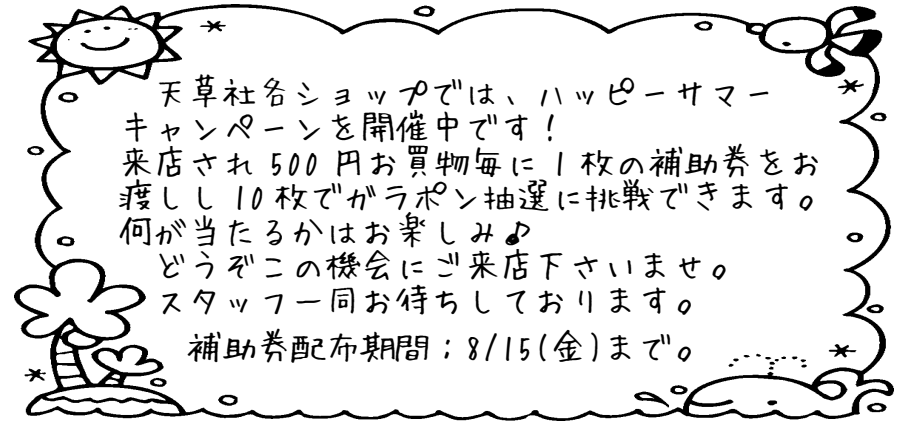 天草社各ショップでは、ハッピーサマー
キャンペーンを開催中です！
来店され500円お買物毎に1枚の補助券をお
渡しし10枚でガラポン抽選に挑戦できます。
何が当たるかはお楽しみ♪
どうぞこの機会にご来店下さいませ。
スタッフ一同お待ちしております。
補助券配布期間：8/15(金)まで。